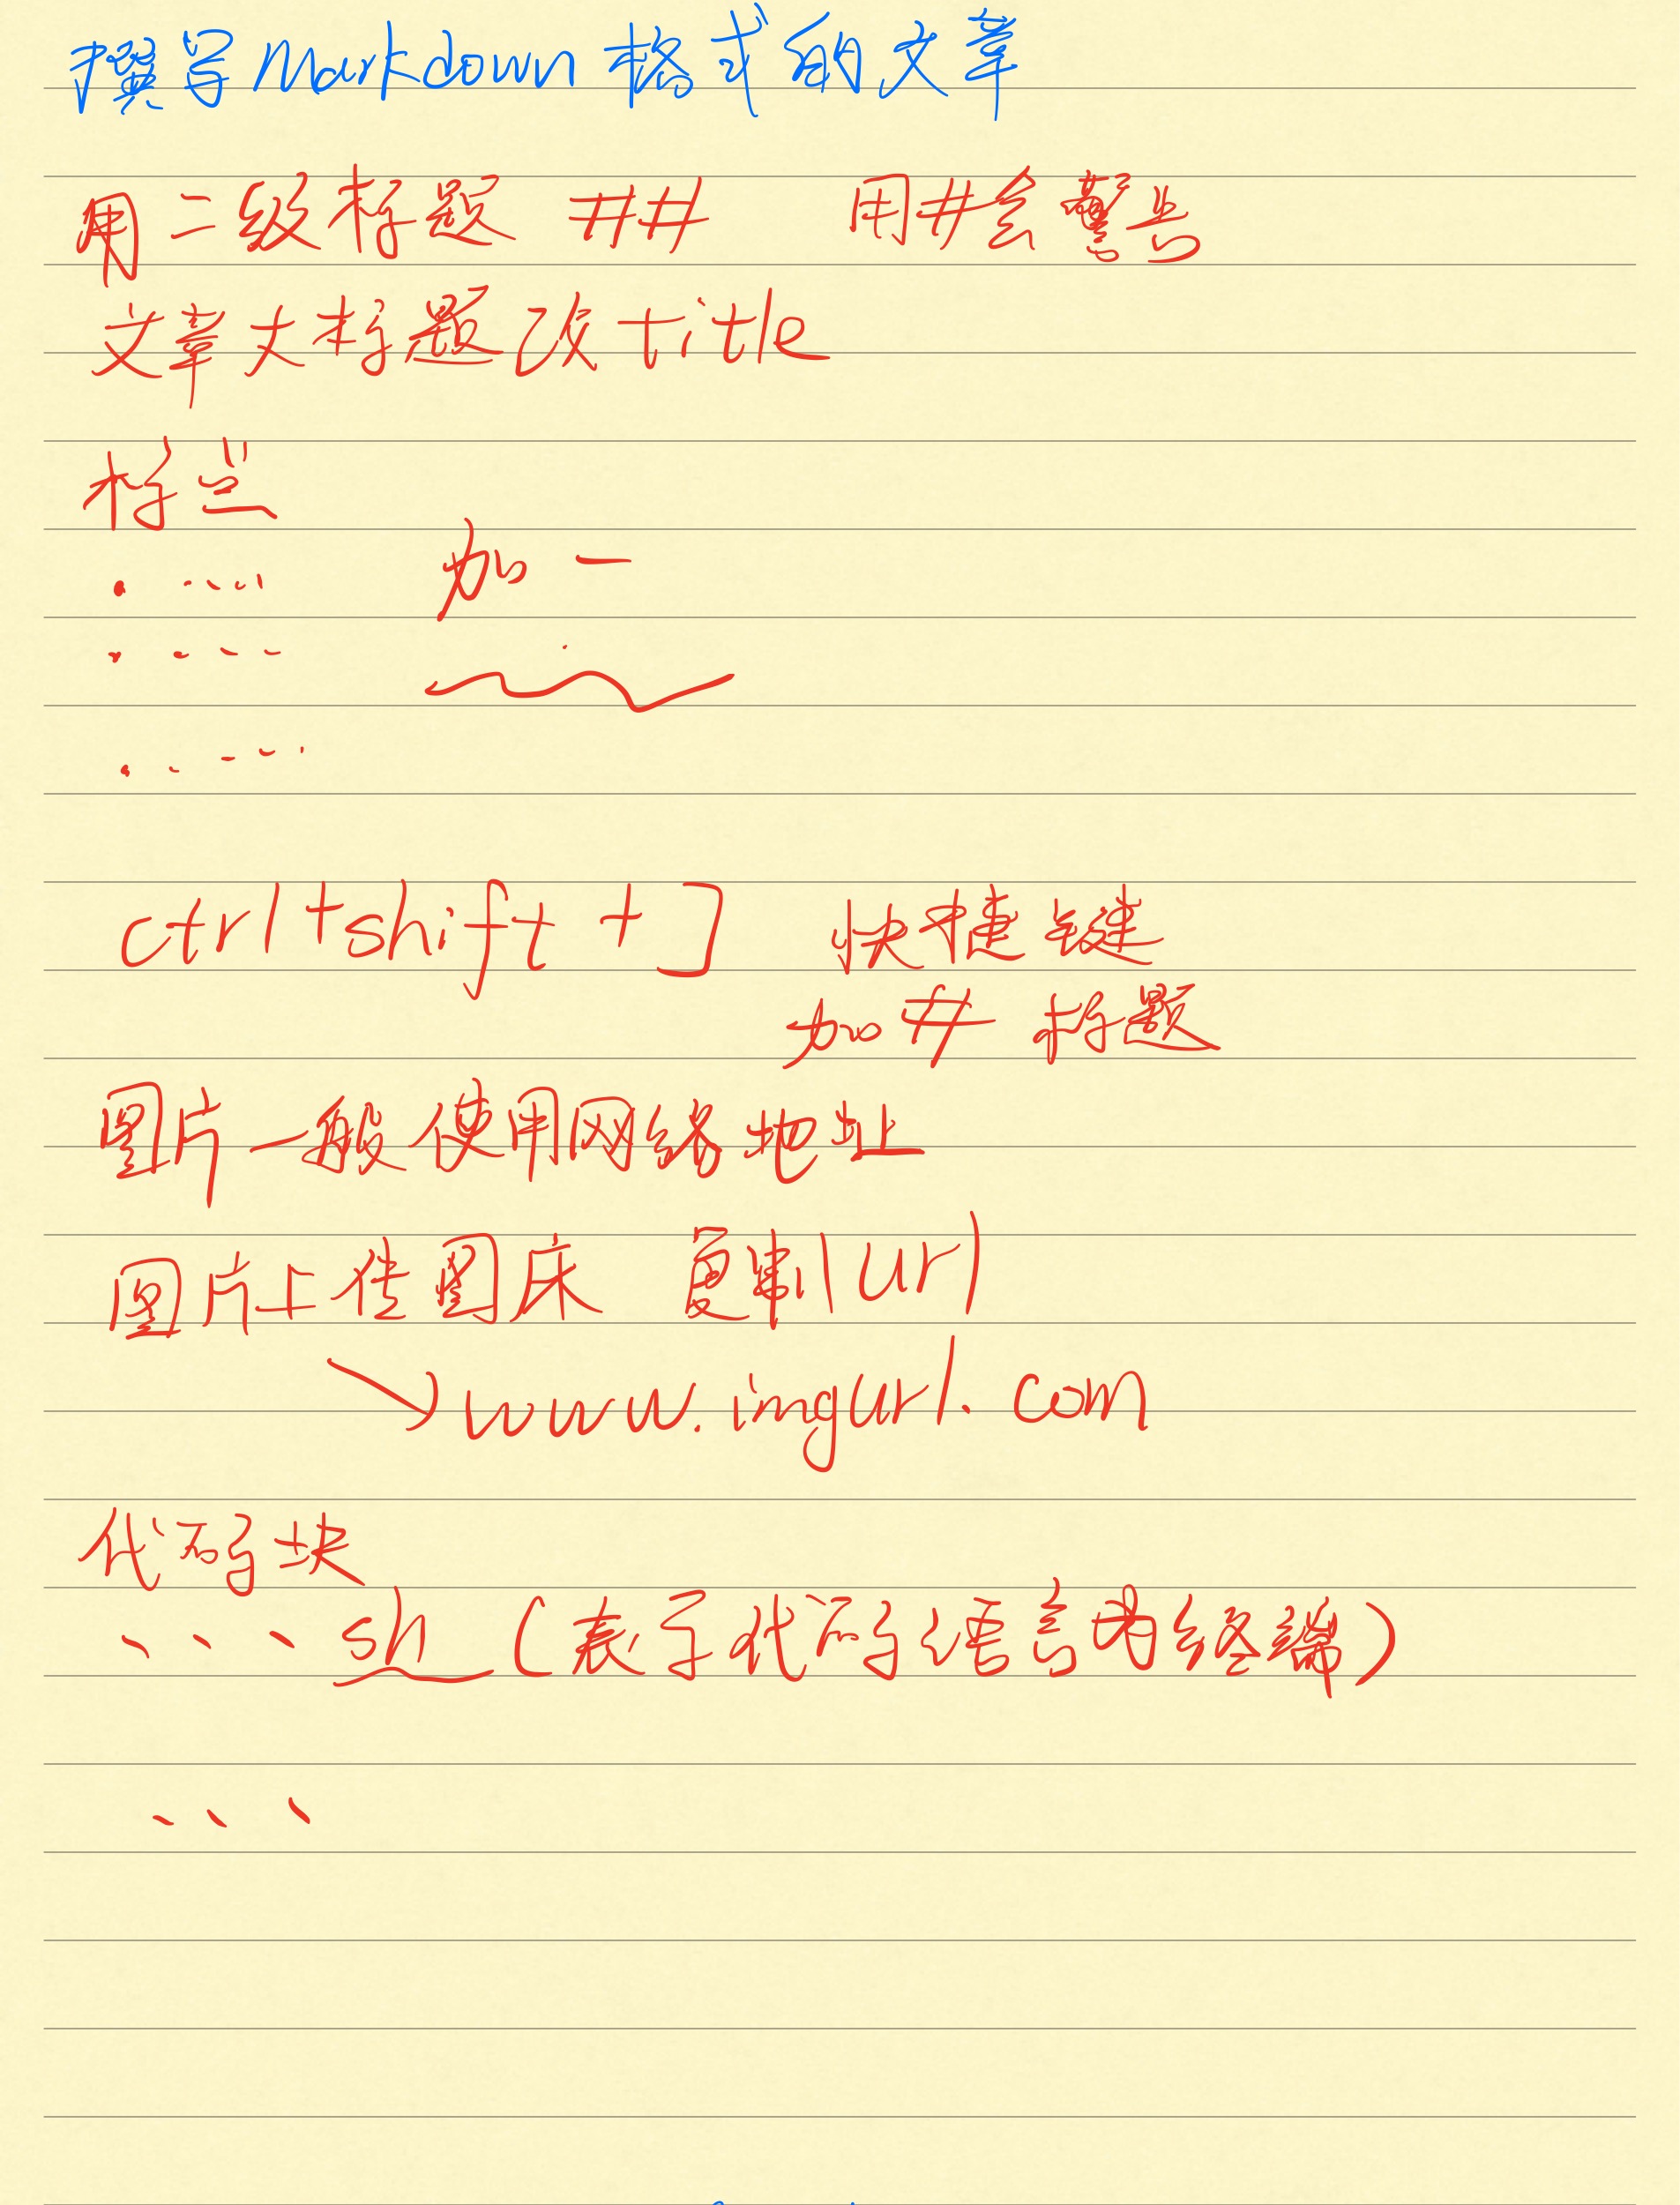 撰写Markdown格式的文章
用二级标题 ## 用#会警告
文章大标题改title
标兰
· ····
加 -
· · · ·
· · · · ·
ctrl+shift + ] 快捷键
加# 标题
图片一般使用网络地址
图片上传图床 复制url
www.imgurl.com
代码块
、、、sh (表示代码语言为终端)
、、、